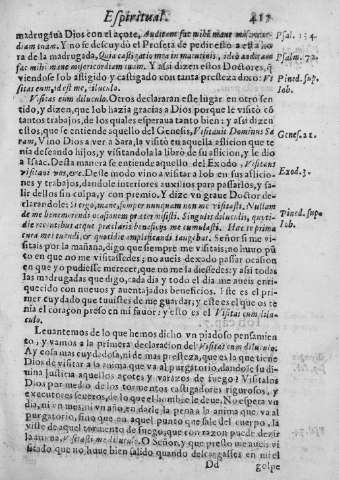 Espiritual. 417
madrugaua Dios con el açote, Auditam fac mihi mane misericor- Psal. 134.
diam tuam. Y no se descuydò el Profeta de pedir esto a esta ho
ra de la madrugada, Quia castigatio mea in matutinis, ideò auditam Psalm. 72.
fac mihi mane misericordiam tuam. Y asi dizen estos Doctores, q̃
viendose Iob afligido y castigado con tanta presteza dixo: Vi Pined. sup.
sitas eum, id est me, diluculo. Iob.
Visitas eum diluculo. Otros declararàn este lugar en otro sen
tido, y dizen, que Iob hazia gracias a Dios porque le visitò tras
tantos trabajos, de los quales esperaua tanto bien: y asi dizen
estos, que se entiende aquello del Genesis, Visitauit Dominus Sa Genes. 21.
ram, Vino Dios a ver a Sara, la visitò en aquella afliccion que te
nia deseando hijos, y visitandola la librò de su afliccion, y le dio
a Isac. Desta manera se entiende aquello del Exodo, Visitens
visitaui vos, &c. Deste modo vino a visitar a Iob en sus afliccio- Exod. 3.
nes y trabajos, dandole interiores auxilios para passarlos, y sa-
lir dellos sin culpa, y con premio. Y dize vn graue Doctor de-
clarandole: Si ergo, mane, semper nunquam non me visitasti. Nullam
de me benemerendi occasionem prætermisisti. Singulis diluculis, quoti- Pined. sup.
die recentibus atque præclaris beneficijs me cumulasti. Hæc te prima Iob.
cura mei tenuit, cor quotidie amplificandi tangebat. Señor si me vi-
sitais por la mañana, digo que siempre me visitais, no huuo pũ
to en que no me visitassedes; no aueis dexado passar ocasion
en que yo pudiesse merecer, que no me la diesedes: y asi todas
las madrugadas que digo, cada dia y todo el dia me aueis enri-
quecido con nueuos y auentajados beneficios. Este es el pri-
mer cuydado que tuuistes de me guardar, y este es el que os te
nia el coraçon preso en mi fauor: y esto es el Visitas eum dilu-
culo.
Leuantemos de lo que hemos dicho vn piadoso pensamien
to, y vamos a la primera declaracion del Visitas eum diluculo.
Ay cosa mas cuydadosa, ni de mas presteza, que es la que tiene
Dios de visitar a la anima que va al purgatorio, dandose su di-
uina Iusticia aquellos açotes y varazos de fuego? Visitalos
Dios por medio de los tormentos castigadores rigurosos, y
executores seueros, de lo que el hombre le deue, No espera vn
dia, ni vn mes, ni vn año, en darle la pena a la anima que va al
purgatorio, sino que en aquel punto que sale del cuerpo, la
viste de aquel tormento de fuego, que con razon puede dezir
la anima, Visitasti me diluculo. O Señor, y que presto me aueis vi
sitado que no huue bien salido quando descargastes en mi el
Dd golpe